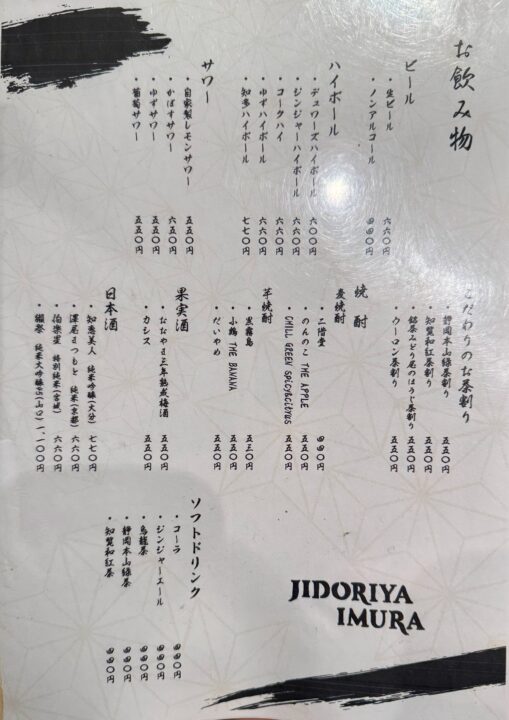 お飲み物
ビール
・生ビール 六六〇円
・ノンアルコール 四四〇円
ハイボール
・デュワーズハイボール 六〇〇円
・ジンジャーハイボール 六六〇円
・コークハイ 六六〇円
・ゆずハイボール 六六〇円
・知多ハイボール 七七〇円
サワー
・自家製レモンサワー 五五〇円
・かぼすサワー 六五〇円
・ゆずサワー 五五〇円
・葡萄サワー 五五〇円
こだわりのお茶割り
・静岡本山緑茶割り 五五〇円
・知覧和紅茶割り 五五〇円
・銘茶みどり尾のほうじ茶割り 五五〇円
・ウーロン茶割り 五五〇円
焼酎
麦焼酎
・二階堂 四四〇円
・のんのこ THE APPLE 五五〇円
・CHILL GREEN spicy&citrus 五五〇円
芋焼酎
・黒霧島 五三〇円
・小鶴 THE BANANA 五五〇円
・だいやめ 五五〇円
果実酒
・おおやま三年熟成梅酒 五五〇円
・カシス 五五〇円
日本酒
・知恵美人 純米吟醸(大分) 七七〇円
・澤屋まつもと 純米(京都) 六六〇円
・伯楽星 特別純米(宮城) 六六〇円
・獺祭 純米大吟醸45(山口) 一、一〇〇円
ソフトドリンク
・コーラ 四四〇円
・ジンジャーエール 四四〇円
・烏龍茶 四四〇円
・静岡本山緑茶 四四〇円
・知覧和紅茶 四四〇円
JIDORIYA
IMURA